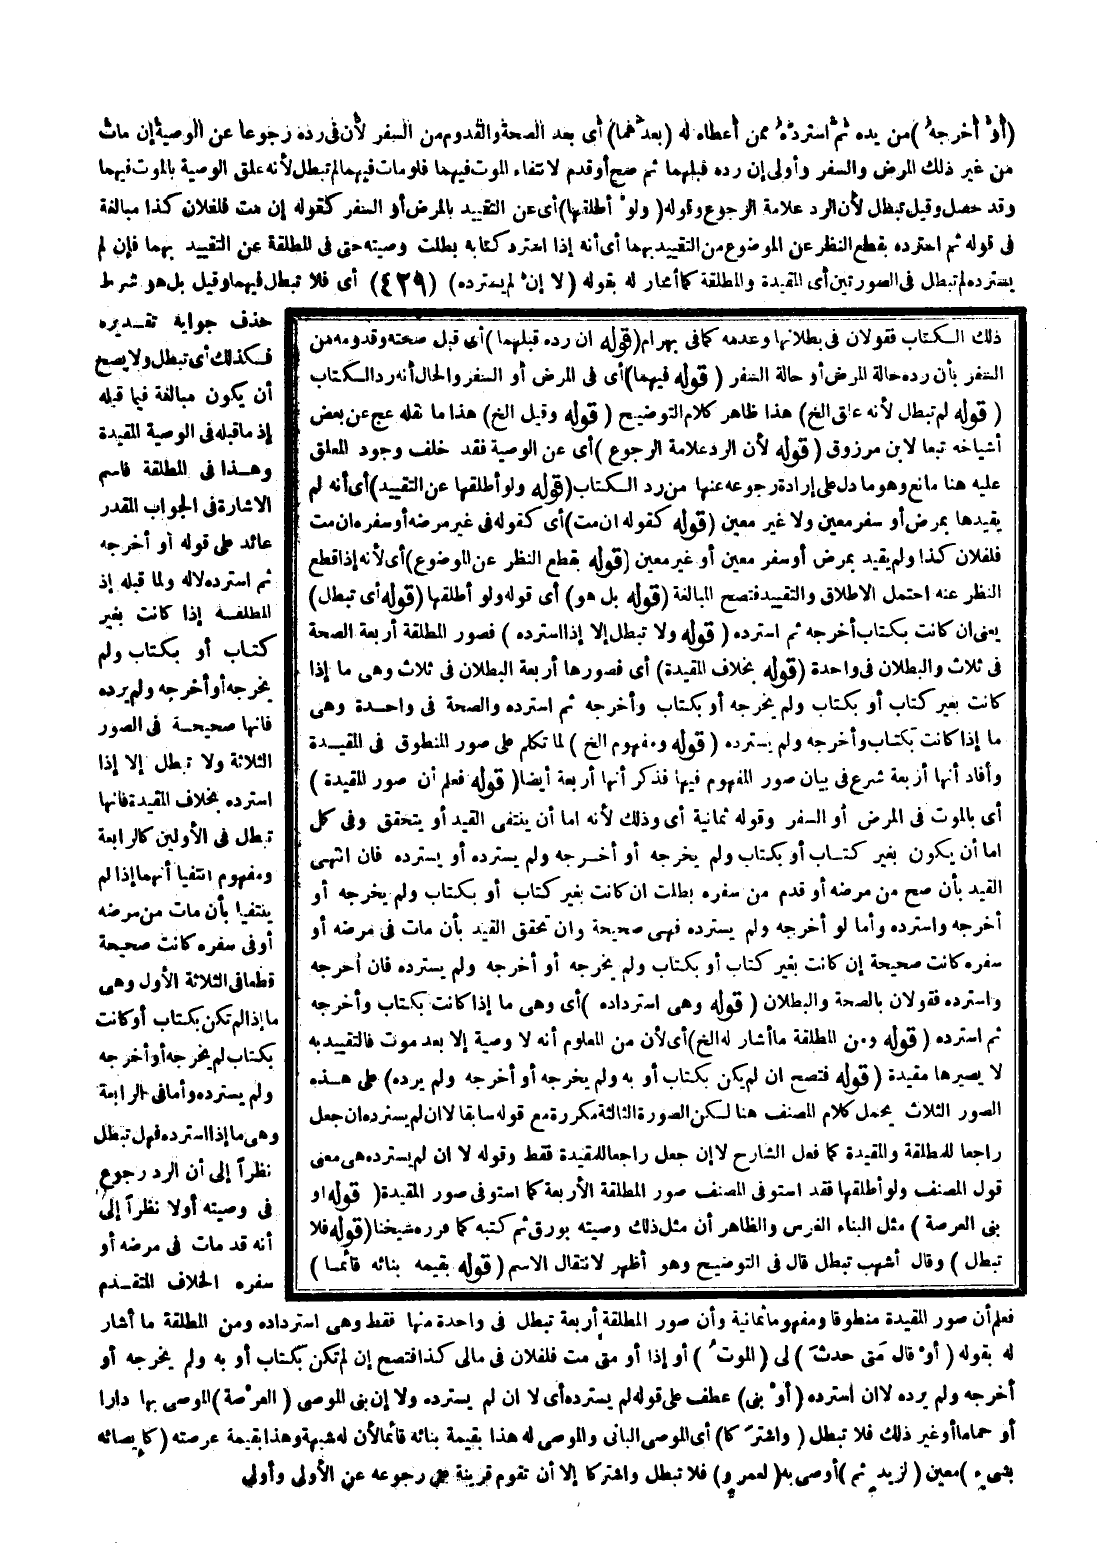 (أَوْ أَخرجهُ) من يده ثُمَّ استردَّهُ ممن أعطاه له (بعدهُما) أى بعد الصحة والقدوم من السفر لأن فى رده رجوعا عن الوصية إن مات
من غير ذلك المرض والسفر وأولى إن رده قبلهما ثم صح أو قدم لانتفاء الموت فيهما فلو مات فيهما لم تبطل لأنه علق الوصية بالموت فيهما
وقد حصل وقيل تبطل لأن الرد علامة الرجوع وقوله (ولوْ أطلقها) أى عن التقييد بالمرض أو السفر كقوله إن مت فلفلان كذا مبالغة
فى قوله ثم استرده بقطع النظر عن الموضوع من التقييد بهما أى أنه إذا استرد كتابه بطلت وصيته حتى فى المطلقة عن التقييد بهما فإن لم
يسترده لم تبطل فى الصورتين أى المقيدة والمطلقة كما أشار له بقوله (لا إنْ لم يسترده) (٤٢٩) أى فلا تبطل فيهما وقيل بل هو شرط
حذف جوابه تقديره
فكذلك أى تبطل ولا يصح
أن يكون مبالغة فيما قبله
إذ ماقبله فى الوصية المقيدة
وهذا فى المطلقة فاسم
الاشارة فى الجواب المقدر
عائد على قوله أو أخرجه
ثم استرده لاله ولما قبله إذ
المطلقة إذا كانت بغير
كتاب أو بكتاب ولم
يخرجه أو أخرجه ولم يرده
فانها صحيحة فى الصور
الثلاثة ولا تبطل إلا إذا
استرده بخلاف المقيدة فانها
تبطل فى الأولين كالرابعة
ومفهوم انتفيا أنهما إذا لم
ينتفيا بأن مات من مرضه
أو فى سفره كانت صحيحة
قطعا فى الثلاثة الأول وهى
ما إذا لم تكن بكتاب أو كانت
بكتاب لم يخرجه أو أخرجه
ولم يسترده وأما فى الرابعة
وهى ما إذا استرده فهل تبطل
نظراً إلى أن الرد رجوع
فى وصيته أولا نظراً إلى
أنه قد مات فى مرضه أو
سفره الخلاف المتقدم
ذلك الكتاب فقولان فى بطلانها وعدمه كما فى بهرام (قوله ان رده قبلهما) أى قبل صحته وقدومه من
السفر بأن رده حالة المرض أو حالة السفر (قوله فيهما) أى فى المرض أو السفر والحال أنه رد الكتاب
(قوله لم تبطل لأنه علق الخ) هذا ظاهر كلام التوضيح (قوله وقيل الخ) هذا ما نقله عج عن بعض
أشياخه تبعا لابن مرزوق (قوله لأن الرد علامة الرجوع) أى عن الوصية فقد خلف وجود المعلق
عليه هنا مانع وهو ما دل على إرادة رجوعه عنها من رد الكتاب (قوله ولو أطلقها عن التقييد) أى أنه لم
يقيدها بمرض أو سفر معين ولا غير معين (قوله كقوله ان مت) أى كقوله فى غير مرضه أو سفره ان مت
فلفلان كذا ولم يقيد بمرض أو سفر معين أو غير معين (قوله بقطع النظر عن الموضوع) أى لأنه إذا قطع
النظر عنه احتمل الاطلاق والتقييد فتصح المبالغة (قوله بل هو) أى قوله ولو أطلقها (قوله أى تبطل)
يعنى ان كانت بكتاب أخرجه ثم استرده (قوله ولا تبطل إلا إذا استرده) فصور المطلقة أربعة الصحة
فى ثلاث والبطلان فى واحدة (قوله بخلاف المقيدة) أى فصورها أربعة البطلان فى ثلاث وهى ما إذا
كانت بغير كتاب أو بكتاب ولم يخرجه أو بكتاب وأخرجه ثم استرده والصحة فى واحدة وهى
ما إذا كانت بكتاب وأخرجه ولم يسترده (قوله ومفهوم الخ) لما تكلم على صور المنطوق فى المقيدة
وأفاد أنها أربعة شرع فى بيان صور المفهوم فيها فذكر أنها أربعة أيضا (قوله فعلم أن صور المقيدة)
أى بالموت فى المرض أو السفر وقوله ثمانية أى وذلك لأنه اما أن ينتفى القيد أو يتحقق وفى كل
اما أن يكون بغير كتاب أو بكتاب ولم يخرجه أو أخرجه ولم يسترده أو يسترده فان انتهى
القيد بأن صح من مرضه أو قدم من سفره بطلت ان كانت بغير كتاب أو بكتاب ولم يخرجه أو
أخرجه واسترده وأما لو أخرجه ولم يسترده فهى صحيحة وان تحقق القيد بأن مات فى مرضه أو
سفره كانت صحيحة إن كانت بغير كتاب أو بكتاب ولم يخرجه أو أخرجه ولم يسترده فان أخرجه
واسترده فقولان بالصحة والبطلان (قوله وهى استرداده) أى وهى ما إذا كانت بكتاب وأخرجه
ثم استرده (قوله ومن المطلقة ما أشار له الخ) أى لأن من المعلوم أنه لا وصية إلا بعد موت فالتقييد به
لا يصيرها مقيدة (قوله فتصح ان لم يكن بكتاب أو به ولم يخرجه أو أخرجه ولم يرده) على هذه
الصور الثلاث يحمل كلام المصنف هنا لكن الصورة الثالثة مكررة مع قوله سابقا لا ان لم يسترده ان جعل
راجعا للمطلقة والمقيدة كما فعل الشارح لا إن جعل راجعا للمقيدة فقط وقوله لا ان لم يسترده هى معنى
قول المصنف ولو أطلقها فقد استوفى المصنف صور المطلقة الأربعة كما استوفى صور المقيدة (قوله او
بنى العرصة) مثل البناء الغرس والظاهر أن مثل ذلك وصيته بورق ثم كتبه كما قرره شيخنا (قوله فلا
تبطل) وقال أشهب تبطل قال فى التوضيح وهو أظهر لانتقال الاسم (قوله بقيمة بنائه قائما)
فعلم أن صور المقيدة منطوقا ومفهوما ثمانية وأن صور المطلقة أربعة تبطل فى واحدة منها فقط وهى استرداده ومن المطلقة ما أشار
له بقوله (أوْ قال مَتى حدثَ) لى (الموتُ) أو إذا أو متى مت فلفلان فى مالى كذا فتصح إن لم تكن بكتاب أو به ولم يخرجه أو
أخرجه ولم يرده لا ان استرده (أوْ بنى) عطف على قوله لم يسترده أى لا ان لم يسترده ولا إن بنى الموصى (العرْصة) الموصى بها دارا
أو حماما أو غير ذلك فلا تبطل (واشترَكا) أى الموصى البانى والموصى له هذا بقيمة بنائه قائما لأن له شبهة وهذا بقيمة عرصته (كإيصائه
بشىءٍ) معين (لزيدٍ ثم) أوصى به (لعمرٍو) فلا تبطل واشتركا إلا أن تقوم قرينة على رجوعه عن الأولى وأولى